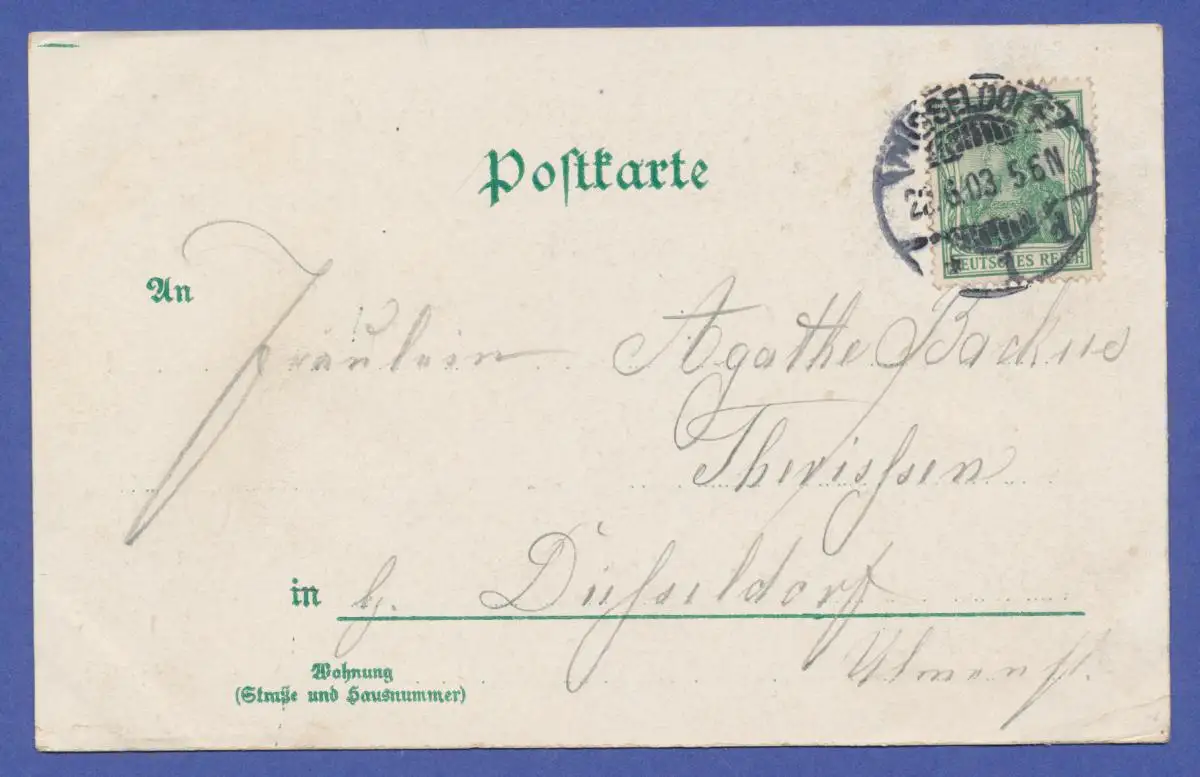 Postkarte
DÜSSELDORF
23.6.03 5-6N
1 d
DEUTSCHES REICH
An
Fräulein Agathe Backus
Therissen
in h. Düsseldorf
Ulmenst.
Wohnung
(Straße und Hausnummer)